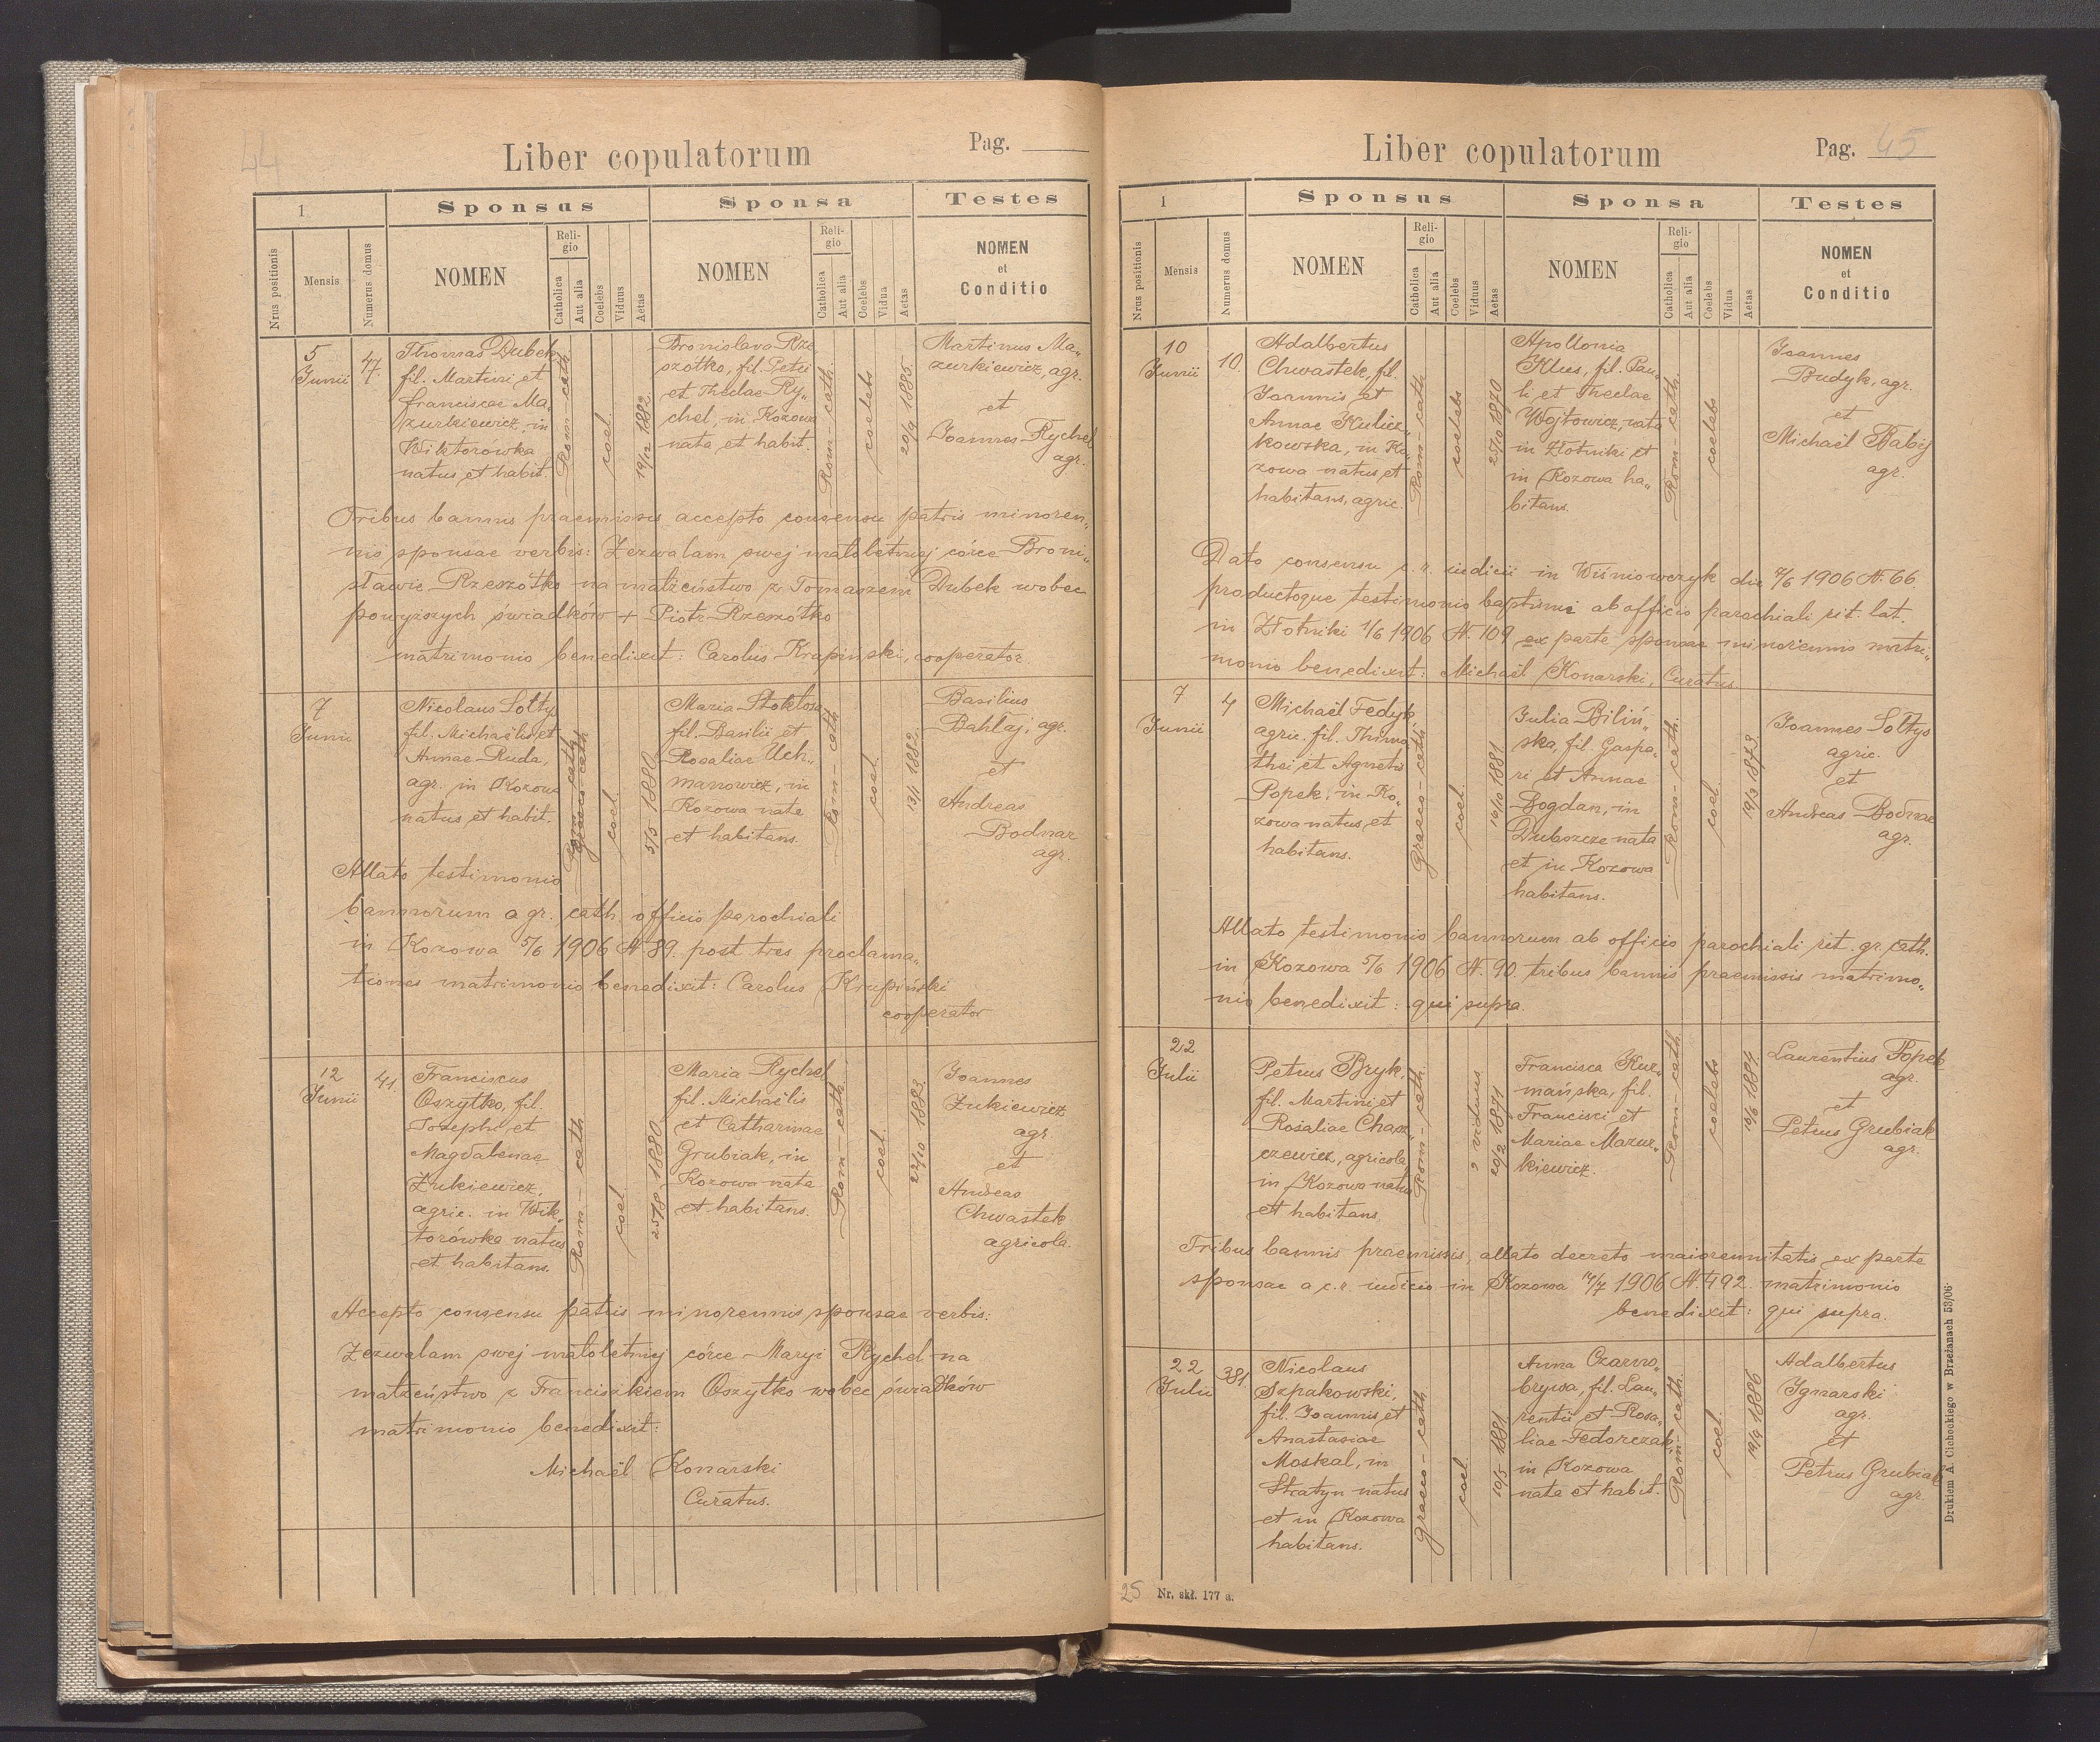 44
Liber copulatorum
Pag.
1
Sponsus
Sponsa
Testes
Nrus positionis
Mensis
Numerus domus
NOMEN
Religio
Catholica
Aut alia
Coelebs
Viduus
Aetas
NOMEN
Religio
Catholica
Aut alia
Coelebs
Vidua
Aetas
NOMEN
et
Conditio
5
Junii
47.
Thomas Dubek
fil. Martini et
Franciscae Ma„
zurkiewicz, in
Wiktorówka
natus et habit.
Rom-cath
coel.
19/12 1882
Bronislava Rze
szotko, fil. Petri
et Theclae Ry„
chel, in Kozowa
nata et habit.
Rom-cath.
coelebs
20/9 1885.
Martinus Ma„
zurkiewicz, agr.
et
Joannes Rychel
agr.
Tribus bannis praemissis accepto consensu patris minoren„
nis sponsae verbis: Zezwalam swej małoletniej córce Broni„
sławie Rzeszótko na małżeństwo z Tomaszem Dubek wobec
powyższych świadków + Piotr Rzeszótko
matrimonio benedixit: Carolus Krupiński, cooperator
7
Junii
Nicolaus Sołtys
fil. Michaelis et
Annae Ruda,
agr. in Kozowa
natus et habit.
Rom-cath
graeco-cath
coel.
5/5 1880
Maria Stoklosa
fil. Basilii et
Rosaliae Uch„
manowicz, in
Kozowa nata
et habitans.
Rom-cath
coel.
13/1 1882
Basilius
Bahlaj, agr.
et
Andreas
Bodnar
agr.
Allato testimonio
bannorum a gr. cath. officio parochiali
in Kozowa 5/6 1906 N. 89. post tres proclama„
tiones matrimonio benedixit: Carolus Krupiński
cooperator
12
Junii
41.
Franciscus
Oszytko, fil.
Josephi et
Magdalenae
Żukiewicz,
agric. in Wik„
torówka natus
et habitans.
Rom-cath
coel.
25/8 1880
Maria Rychel
fil. Michaelis
et Catharinae
Grubiak, in
Kozowa nata
et habitans.
Rom-cath.
coel.
27/10 1883.
Joannes
Żukiewicz
agr.
et
Andreas
Chwastek
agricola.
Accepto consensu patris minorennis sponsae verbis:
Zezwalam swej małoletniej córce Maryi Rychel na
małżeństwo z Franciszkiem Oszytko wobec świadków
matrimonio benedixit:
Michaël Konarski
Curatus.
Liber copulatorum
Pag. 45
1
Sponsus
Sponsa
Testes
Nrus positionis
Mensis
Numerus domus
NOMEN
Religio
Catholica
Aut alia
Coelebs
Viduus
Aetas
NOMEN
Religio
Catholica
Aut alia
Coelebs
Vidua
Aetas
NOMEN
et
Conditio
10
Junii
10.
Adalbertus
Chwastek, fil.
Joannis et
Annae Kulicz„
kowska, in Ko„
zowa natus et
habitans, agric.
Rom-cath
coelebs
25/10 1870
Apollonia
Klus, fil. Pau„
li et Theclae
Wojtowicz, nata
in Złotniki et
in Kozowa ha„
bitans.
Rom-cath.
coelebs
Joannes
Budyk, agr.
et
Michaël Babij
agr.
Dato consensu c. r. iudicii in Wiśniowczyk die 7/6 1906 N. 66
productoque testimonio baptismi ab officio parochiali rit. lat.
in Złotniki 1/6 1906 N. 109 ex parte sponsae minorennis matri„
monio benedixit: Michaël Konarski, Curatus.
7
Junii
4
Michaël Fedyk,
agric. fil. Thimo„
thei et Agnetis
Popek, in Ko„
zowa natus et
habitans.
Graeco-cath
coel.
16/10 1881.
Julia Biliń„
ska, fil. Gaspa„
ri et Annae
Bogdan, in
Dubszcze nata
et in Kozowa
habitans.
Rom-cath.
coel.
19/3 1873.
Joannes Sołtys
agric.
et
Andreas Bodnar
agr.
Allato testimonio bannorum ab officio parochiali rit. gr. cath.
in Kozowa 5/6 1906 N. 90. tribus bannis praemissis matrimo„
nio benedixit: qui supra.
22
Julii
Petrus Bryk,
fil. Martini et
Rosaliae Charz„
czewicz, agricola
in Kozowa natus
et habitans
Rom-cath.
viduus
20/2 1871
Francisca Kuz„
mańska, fil.
Francisci et
Mariae Mazur„
kiewicz.
Rom-cath
coelebs
10/6 1884.
Laurentius Popek
agr.
et
Petrus Grubiak
agr.
Tribus bannis praemissis, allato decreto maiorennitatis ex parte
sponsae a c. r. iudicio in Kozowa 14/7 1906 N. 492. matrimonio
benedixit: qui supra.
22
Julii
381.
Nicolaus
Szpakowski,
fil. Joannis et
Anastasiae
Moskal, in
Stratyn natus
et in Kozowa
habitans.
graeco-cath
coel.
10/5 1881.
Anna Czarno„
brywa, fil. Lau„
rentii et Rosa„
liae Fedorczak,
in Kozowa
nata et habit.
Rom-cath.
coel.
19/9 1886
Adalbertus
Ignarski
agr.
et
Petrus Grubiak
agr.
Drukiem A. Cichockiego w Brzeżanach 53/06
25
Nr. skł. 177 a.